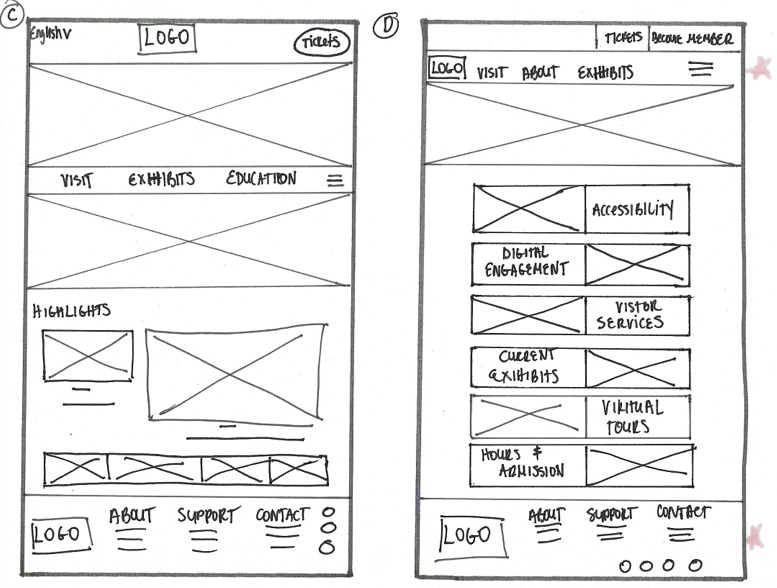 C
English V
LOGO
Tickets
VISIT EXHIBITS EDUCATION
HIGHLIGHTS
LOGO
ABOUT SUPPORT CONTACT
D
TICKETS BECOME MEMBER
LOGO VISIT ABOUT EXHIBITS
ACCESSIBILITY
DIGITAL
ENGAGEMENT
VISTOR
SERVICES
CURRENT
EXIHIBITS
VIRITUAL
TOURS
HOURS &
ADMISSION
LOGO
ABOUT SUPPORT CONTACT